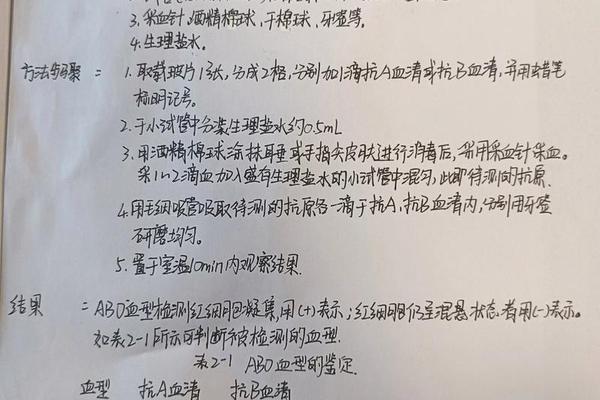 3. 采血针、酒精棉球、干棉球、牙签等。
4. 生理盐水。
方法与步聚: 1. 取载玻片1张,分成2格,分别加1滴抗A血清或抗B血清,并用蜡笔
标明记号。
2. 于小试管中分装生理盐水约0.5mL
3. 用酒精棉球涂抹耳垂或手指尖皮肤进行消毒后,采用采血针采血。
采1~2滴血加入盛有生理盐水的小试管中混匀,此即待测的抗原.
4. 用毛细吸管吸取待测的抗原各一滴于抗A、抗B血清内,分别用牙签
研磨均匀。
5. 置于室温10min内观察结果.
结果 = ABO血型检测红细胞凝集,用(+)表示;红细胞仍呈混悬状态者用(-)表示。
如表2-1所示可判断被检测的血型.
表2-1 ABO血型的鉴定.
血型 抗A血清 抗B血清